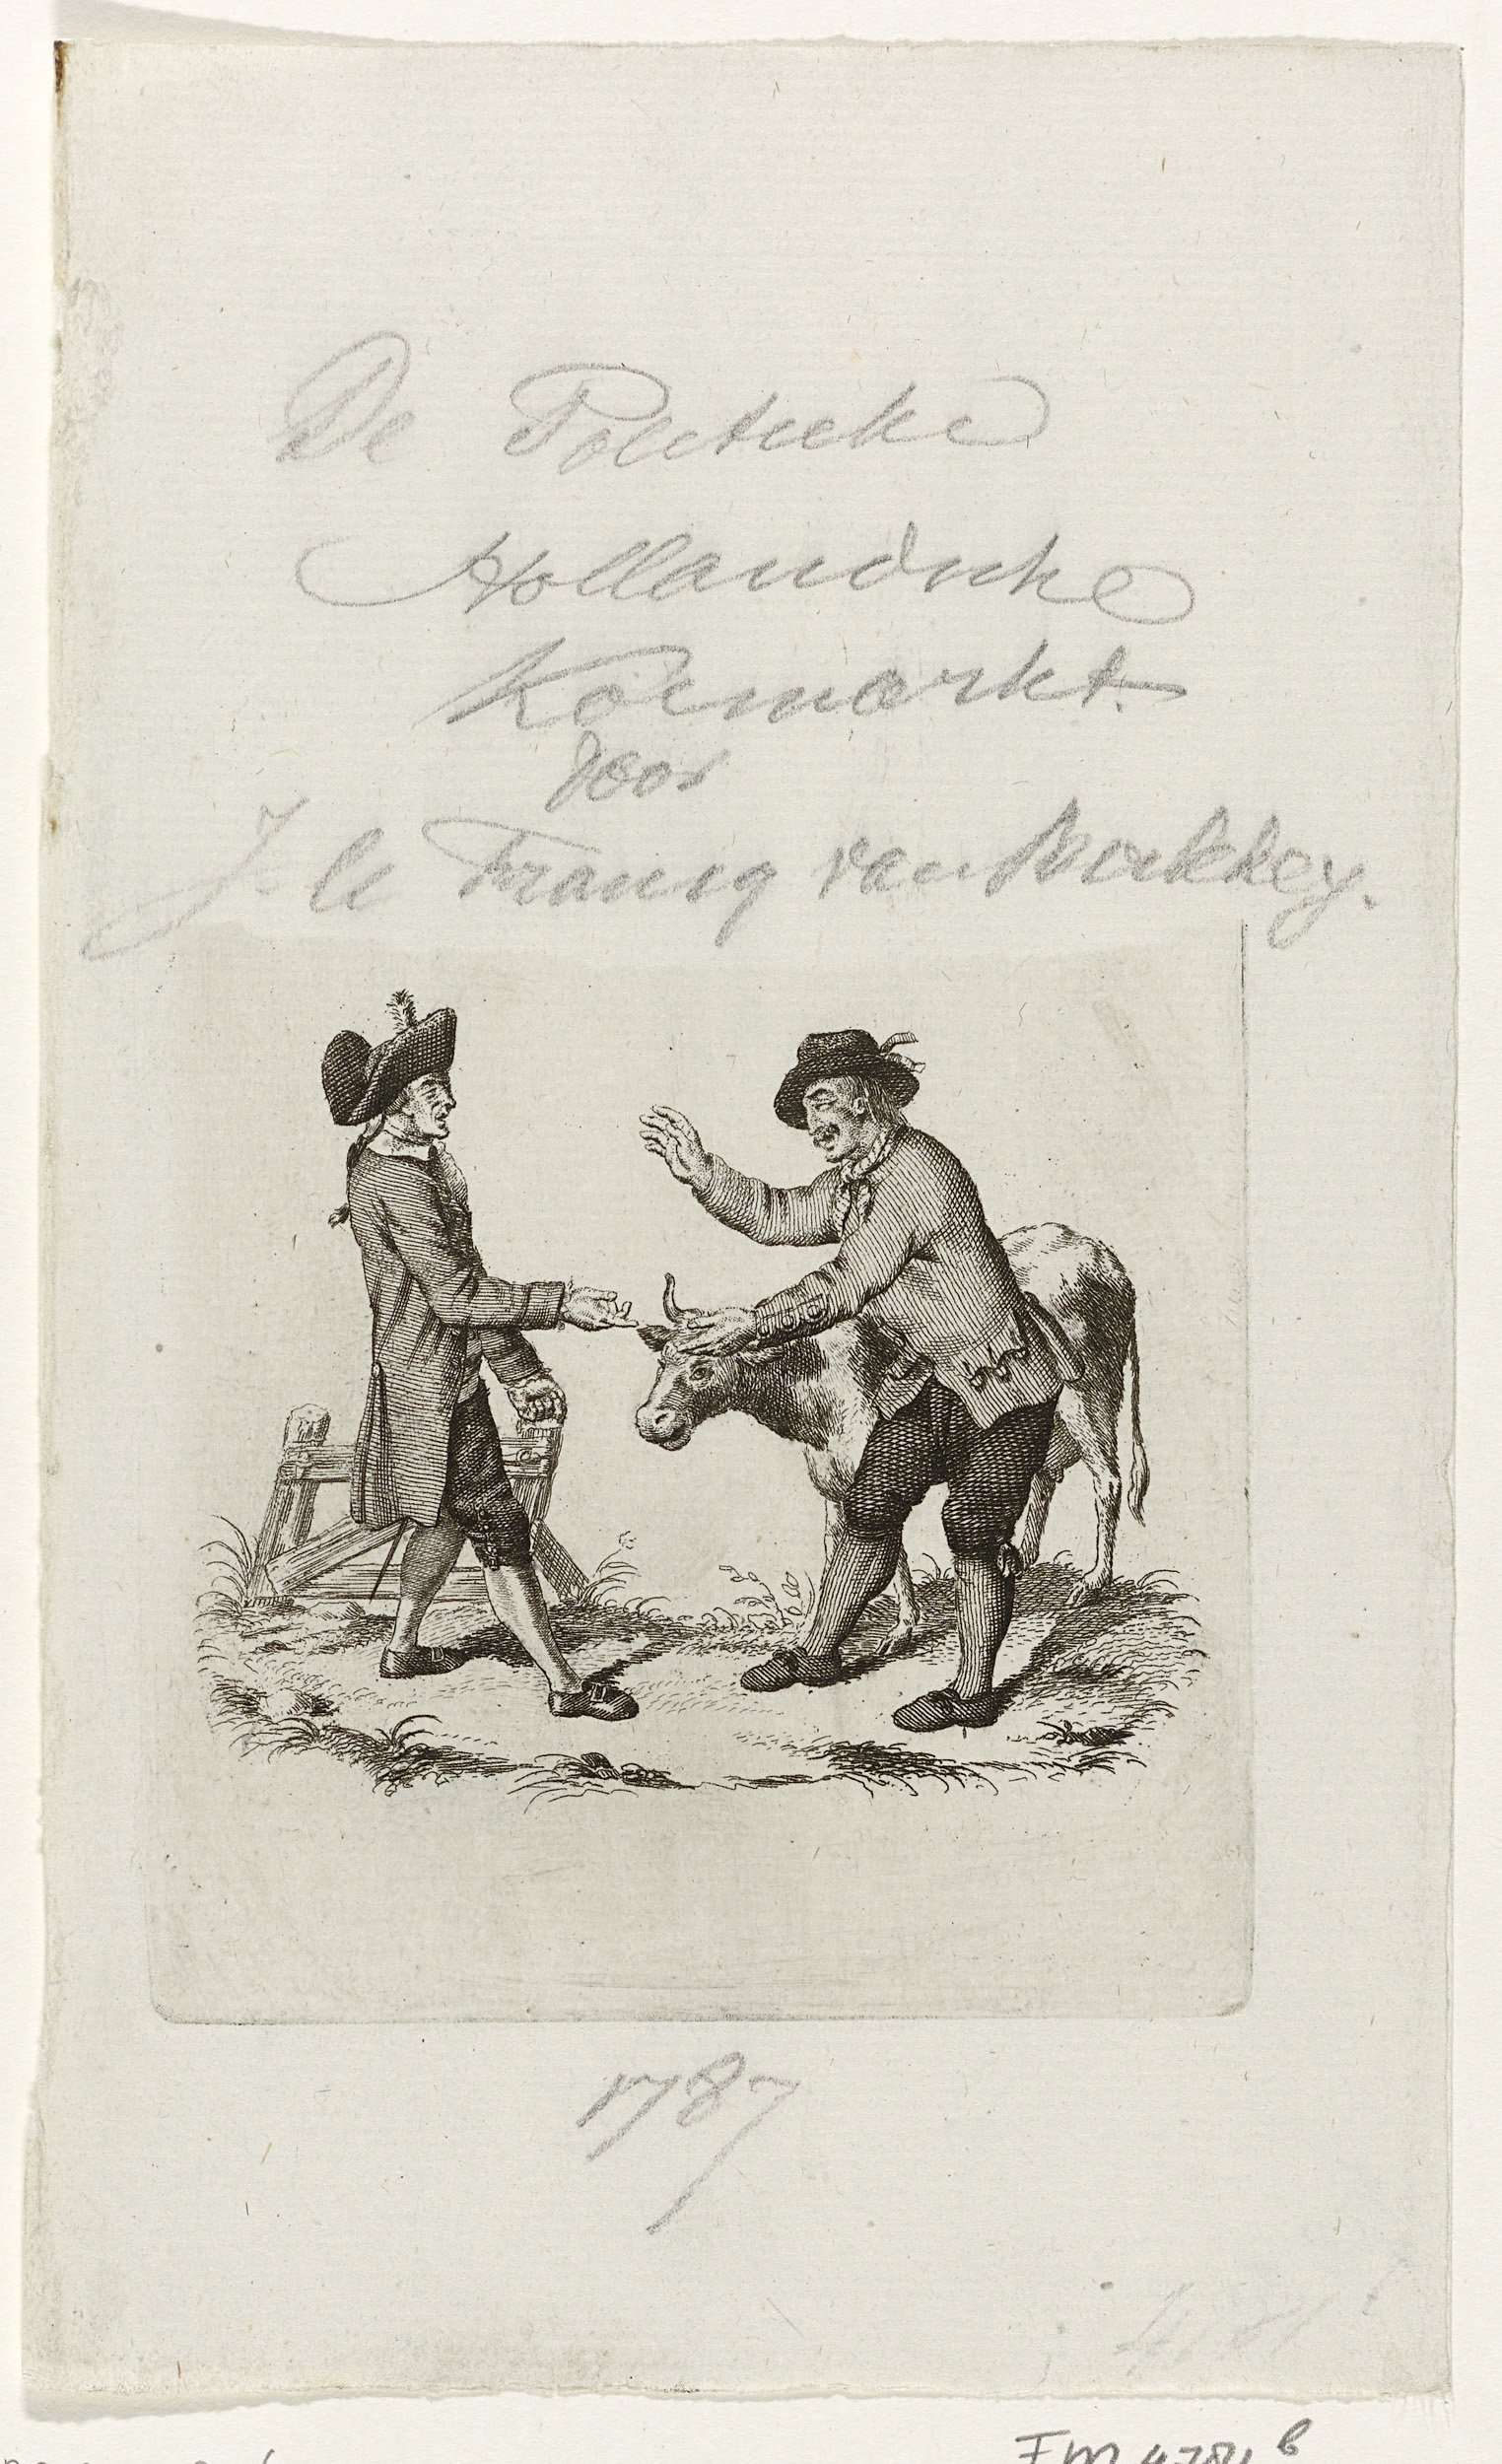 De Politieke
Hollandsche
Koemarkt.
door
J. le Francq van Berkhey.
1787
FM 4784 b